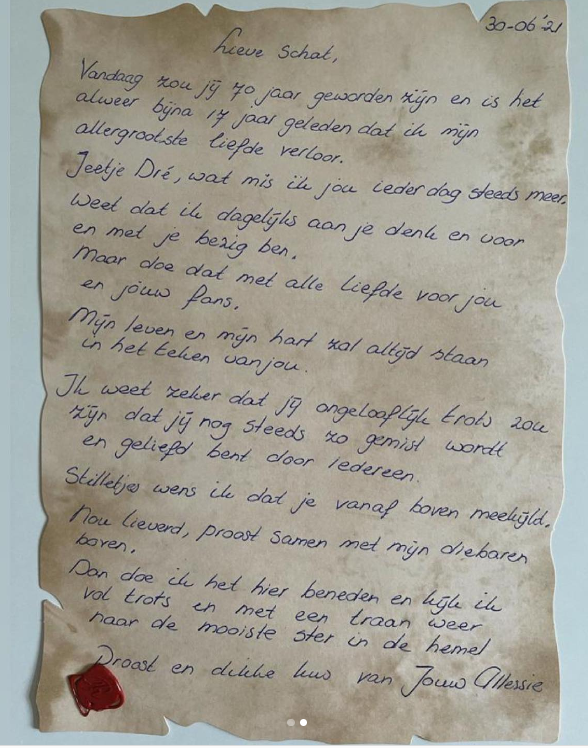 30-06-'21
Lieve Schat,
Vandaag zou jij 70 jaar geworden zijn en is het
alweer bijna 17 jaar geleden dat ik mijn
allergrootste liefde verloor.
Jeetje Dré, wat mis ik jou ieder dag steeds meer.
Weet dat ik dagelijks aan je denk en voor
en met je bezig ben.
Maar doe dat met alle liefde voor jou
en jouw fans.
Mijn leven en mijn hart zal altijd staan
in het teken van jou.
Ik weet zeker dat jij ongelooflijk trots zou
zijn dat jij nog steeds zo gemist wordt
en geliefd bent door Iedereen.
Stilletjes wens ik dat je vanaf boven meekijkt.
Nou lieverd, proost samen met mijn diebaren
boven.
Dan doe ik het hier beneden en kijk ik
vol trots en met een traan weer
naar de mooiste ster in de hemel
Proost en dikke kus van Jouw Allessie